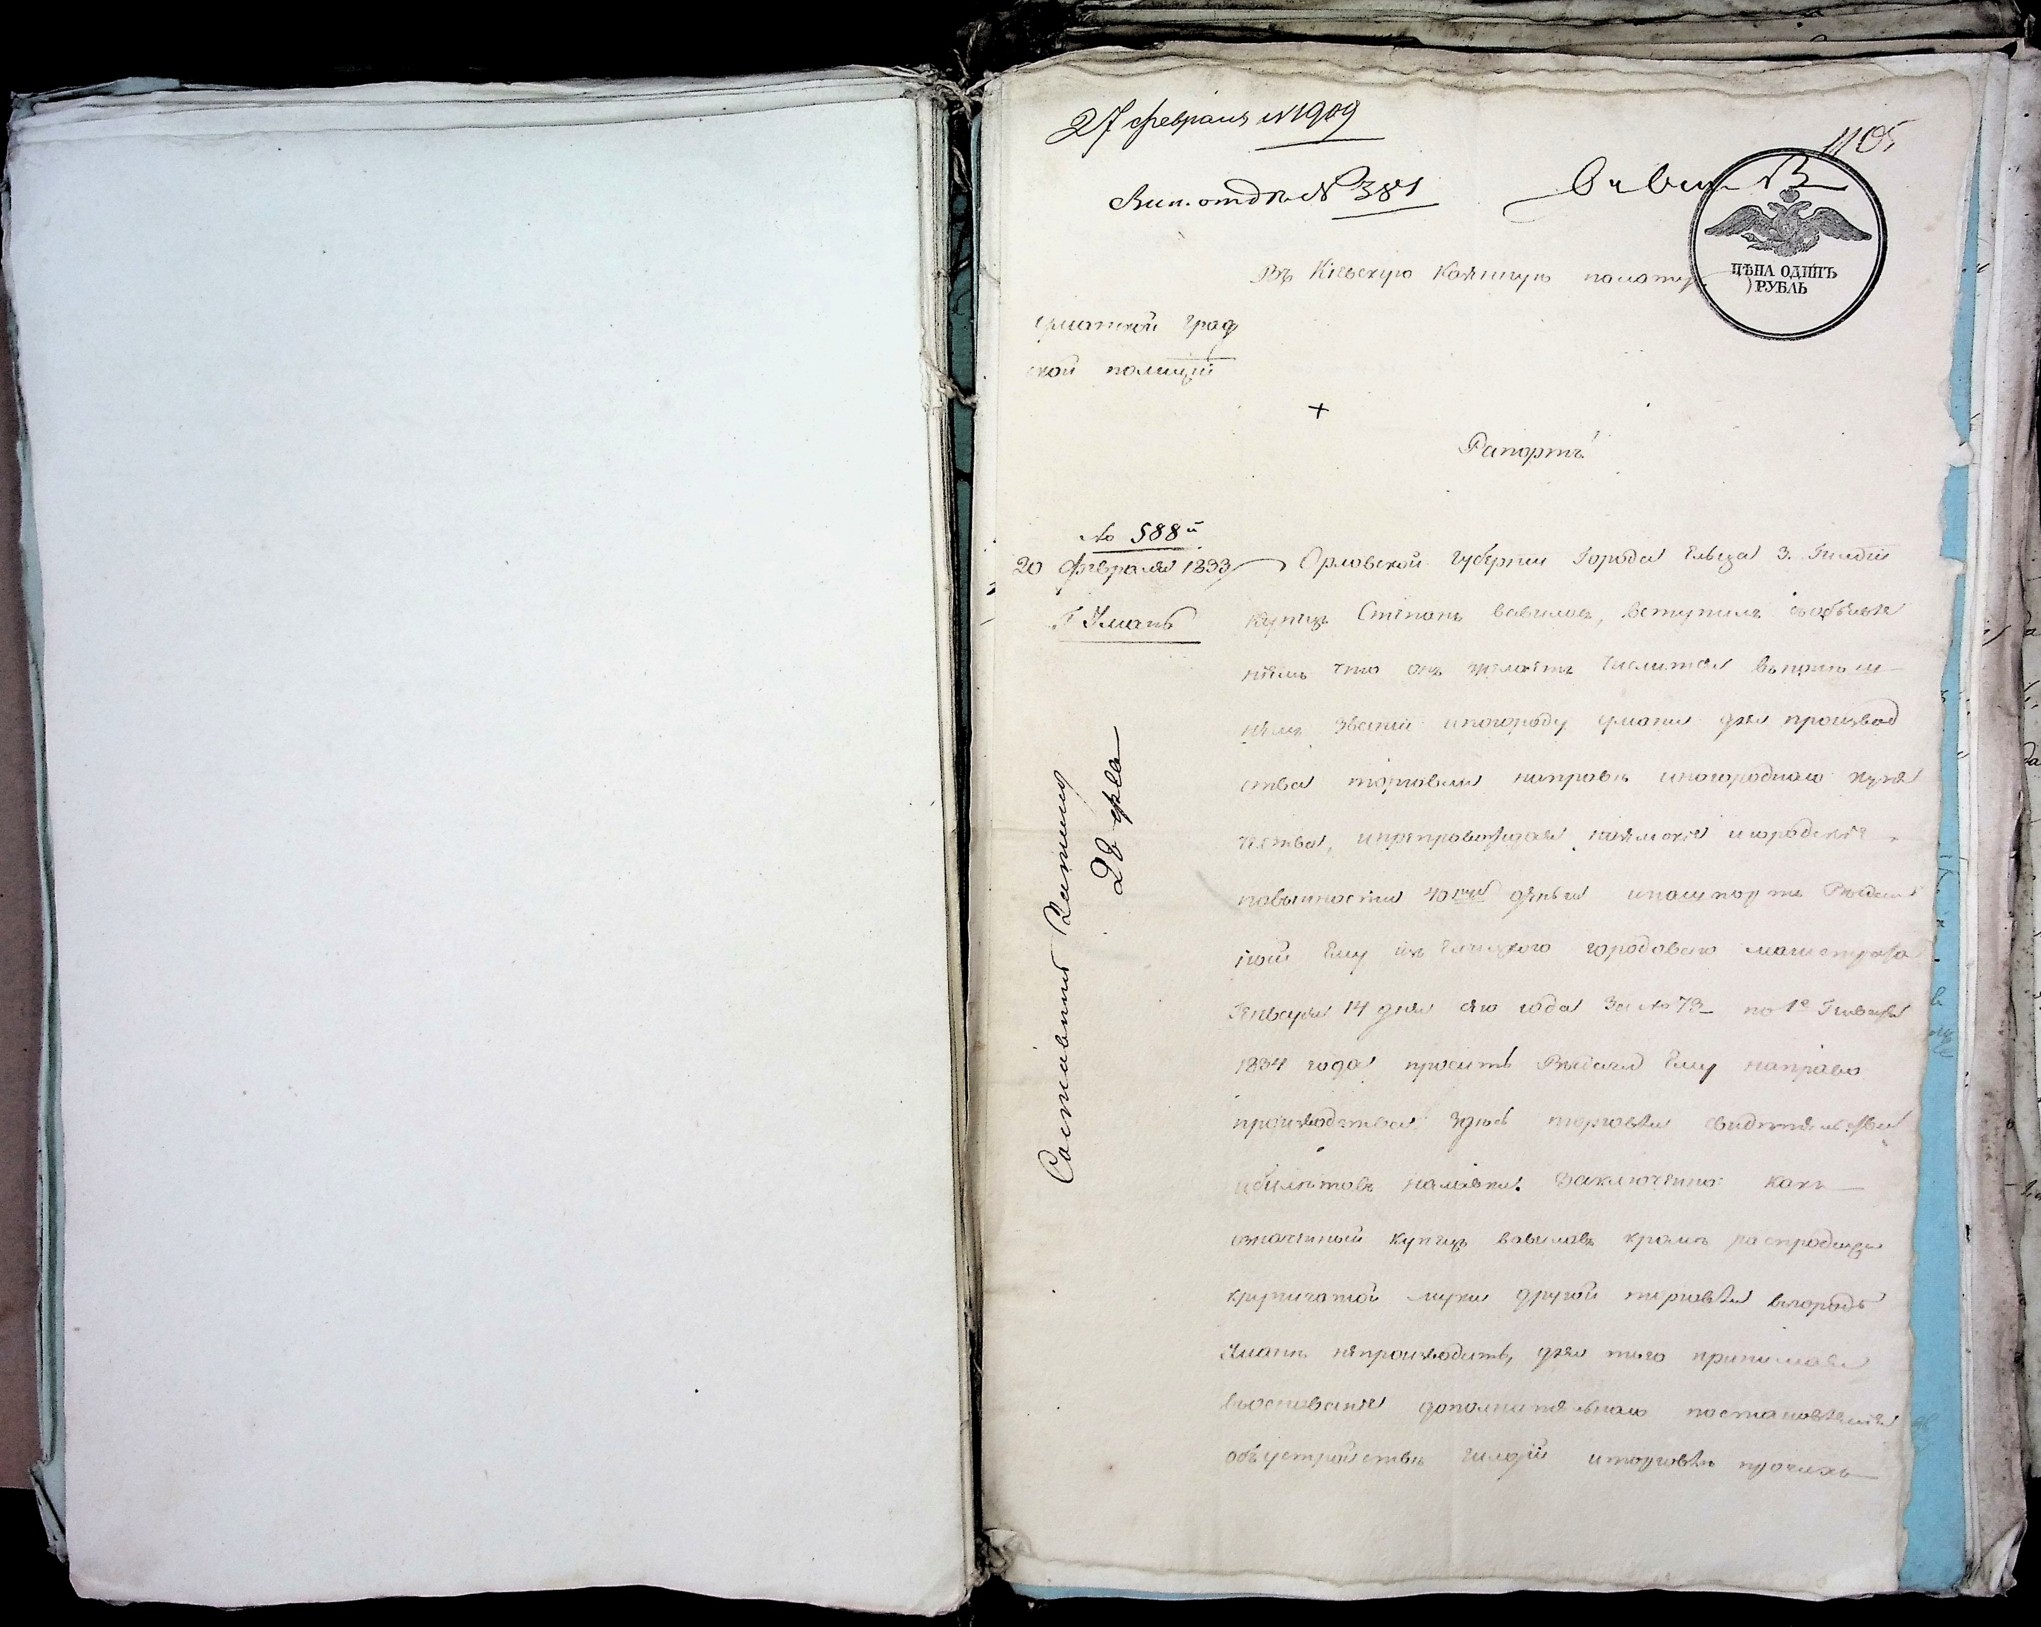 27 февраля №1909
Вин. отдѣл № 381
ЦѢНА ОДИНЪ
РУБЛЬ
Въ Кіевскую Казенную палату
Уманской град
ской полиціи
+
Рапортъ
№ 588й
20 февраля 1833
Г Умань
Орловской губерніи Города Ельца 3. Гилдіи
купецъ Степанъ вавиловъ, вступилъ собъявле
ніемъ что онъ желаетъ числится
званіи погороду умани для производ
ства торговли направѣ иногороднаго купе
чества, ипрепровождая наземскія игородскія
повинности 40 денги ипашпортъ Выдан
ной Ему изъ Елецкого городового магистрата
Генваря 14 дня сего года За № 73 по 1е Генваря
1834 года проситъ Выдачи Ему направо
производства здѣсь торговли свидетельства
ибилетовъ налавки. Заключено: какъ
означенный купецъ вавиловъ кромѣ распродажи
крупичатой муки другой торговли вгородѣ
Умани непроизводитъ, для того принимая
воснованіе дополнительнаго постановленія
объустройствѣ гилдій иторговлѣ прочихъ
28 фев